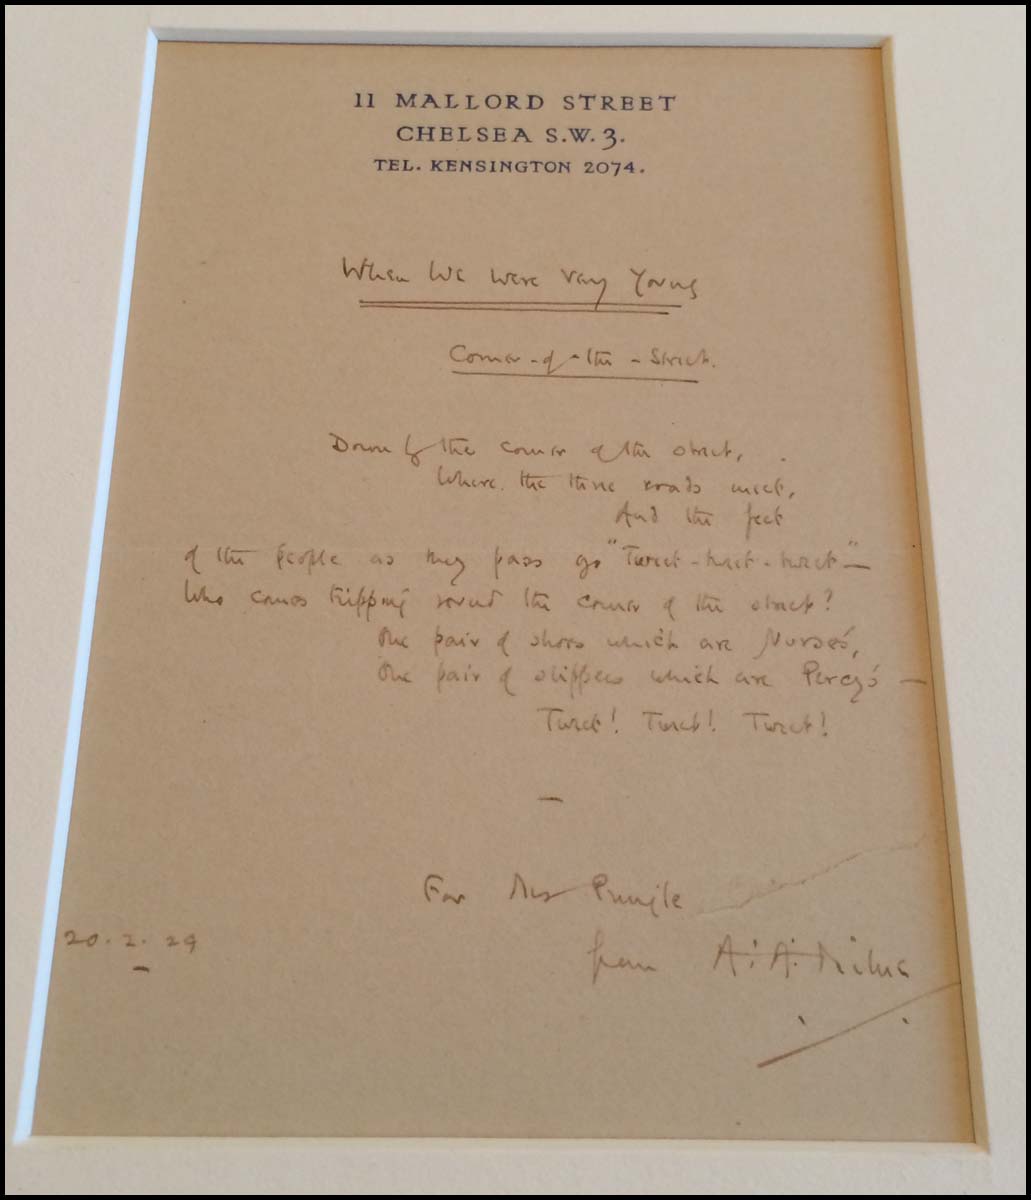 11 MALLORD STREET
CHELSEA S.W.3.
TEL. KENSINGTON 2074.
When We Were Very Young
Corner-of-the-Street.
Down by the corner of the street,
Where the three roads meet,
And the feet
Of the people as they pass go "Tweet-tweet-tweet"—
Who comes tripping round the corner of the street?
One pair of shoes which are Nurse's,
One pair of slippers which are Percy's —
Tweet! Tweet! Tweet!
For Mrs Pringle
20.2.29
from A.A. Milne